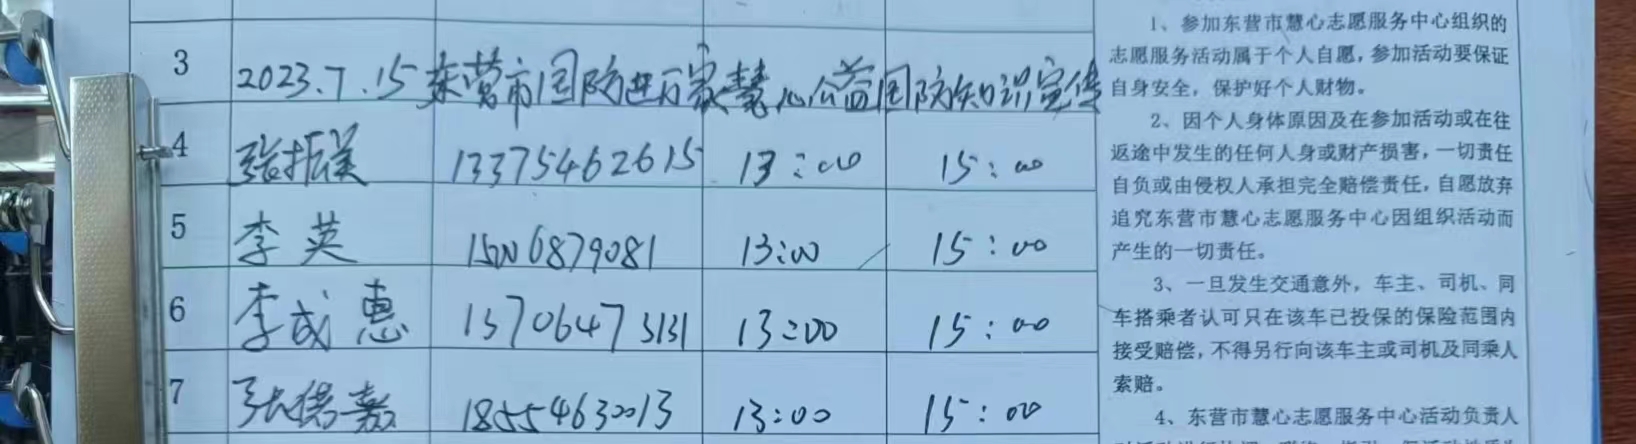 3 2023.7.15 东营市国防进万家慧心公益国防知识宣传
4 张振 13375462615 13:00 15:00
5 李英 15006879081 13:00 15:00
6 李成惠 13706473131 13:00 15:00
7 张 嘉 18554630013 13:00 15:00
1、参加东营市慧心志愿服务中心组织的
志愿服务活动属于个人自愿，参加活动要保证
自身安全，保护好个人财物。
2、因个人身体原因及在参加活动或在往
返途中发生的任何人身或财产损害，一切责任
自负或由侵权人承担完全赔偿责任，自愿放弃
追究东营市慧心志愿服务中心因组织活动而
产生的一切责任。
3、一旦发生交通意外，车主、司机、同
车搭乘者认可只在该车已投保的保险范围内
接受赔偿，不得另行向该车主或司机及同乘人
索赔。
4、东营市慧心志愿服务中心活动负责人